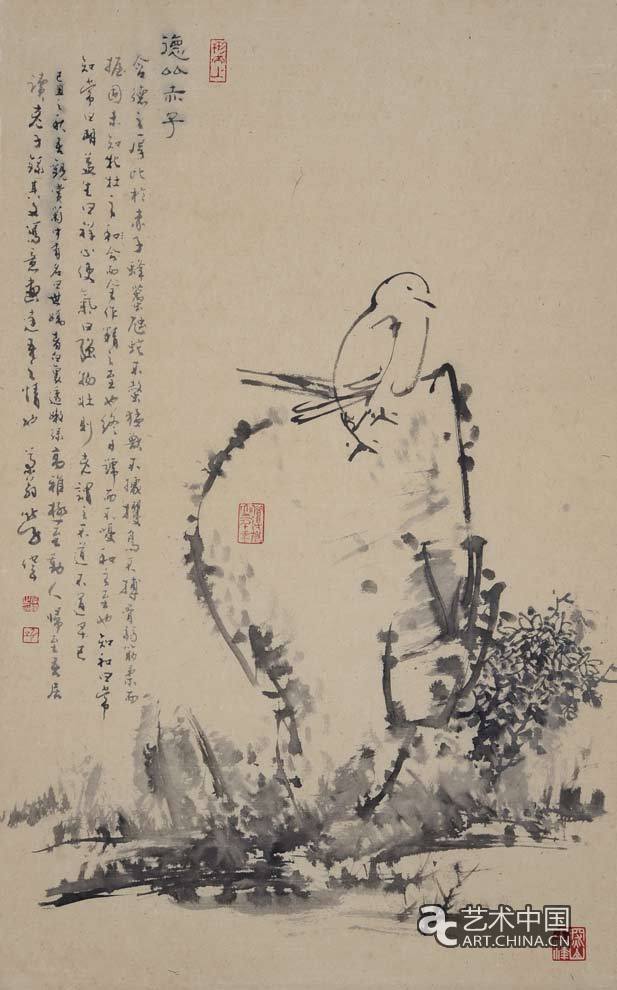 德比赤子
含德之厚比於赤子蜂蠆虺蛇不螫猛獸不據攫鳥不搏骨弱筋柔而
握固未知牝牡之和合而全作精之至也終日號而不嗄和之至也知和曰常
知常曰明益生曰祥心使氣曰強物壯則老謂之不道不道早已
己丑之秋吾觀賞菊中有名曰世瑪者白裏透嫩綠高雅極至動人歸至吾居
讀老子錄其文寫意畫達吾之情也
形而上
艺术中国
ART.CHINA.CN